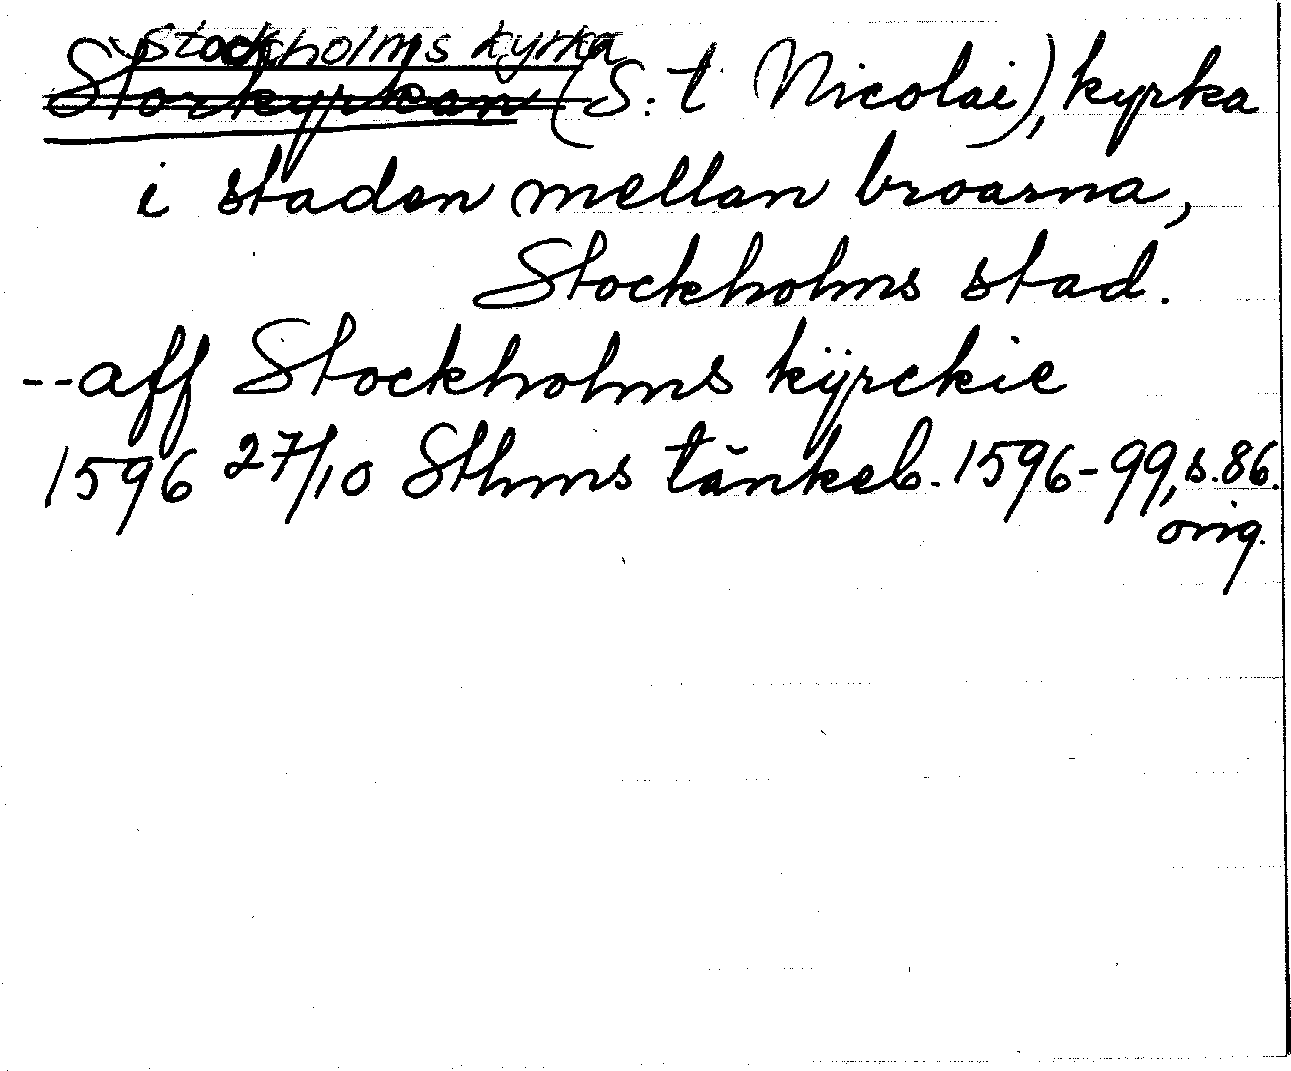 Stockholms kyrka
Storkyrkan (S:t Nicolai), kyrka
i staden mellan broarna,
Stockholms stad.
--aff Stockholms kÿrckie
1596 27/10 Sthms tänkeb. 1596-99, s. 86.
orig.